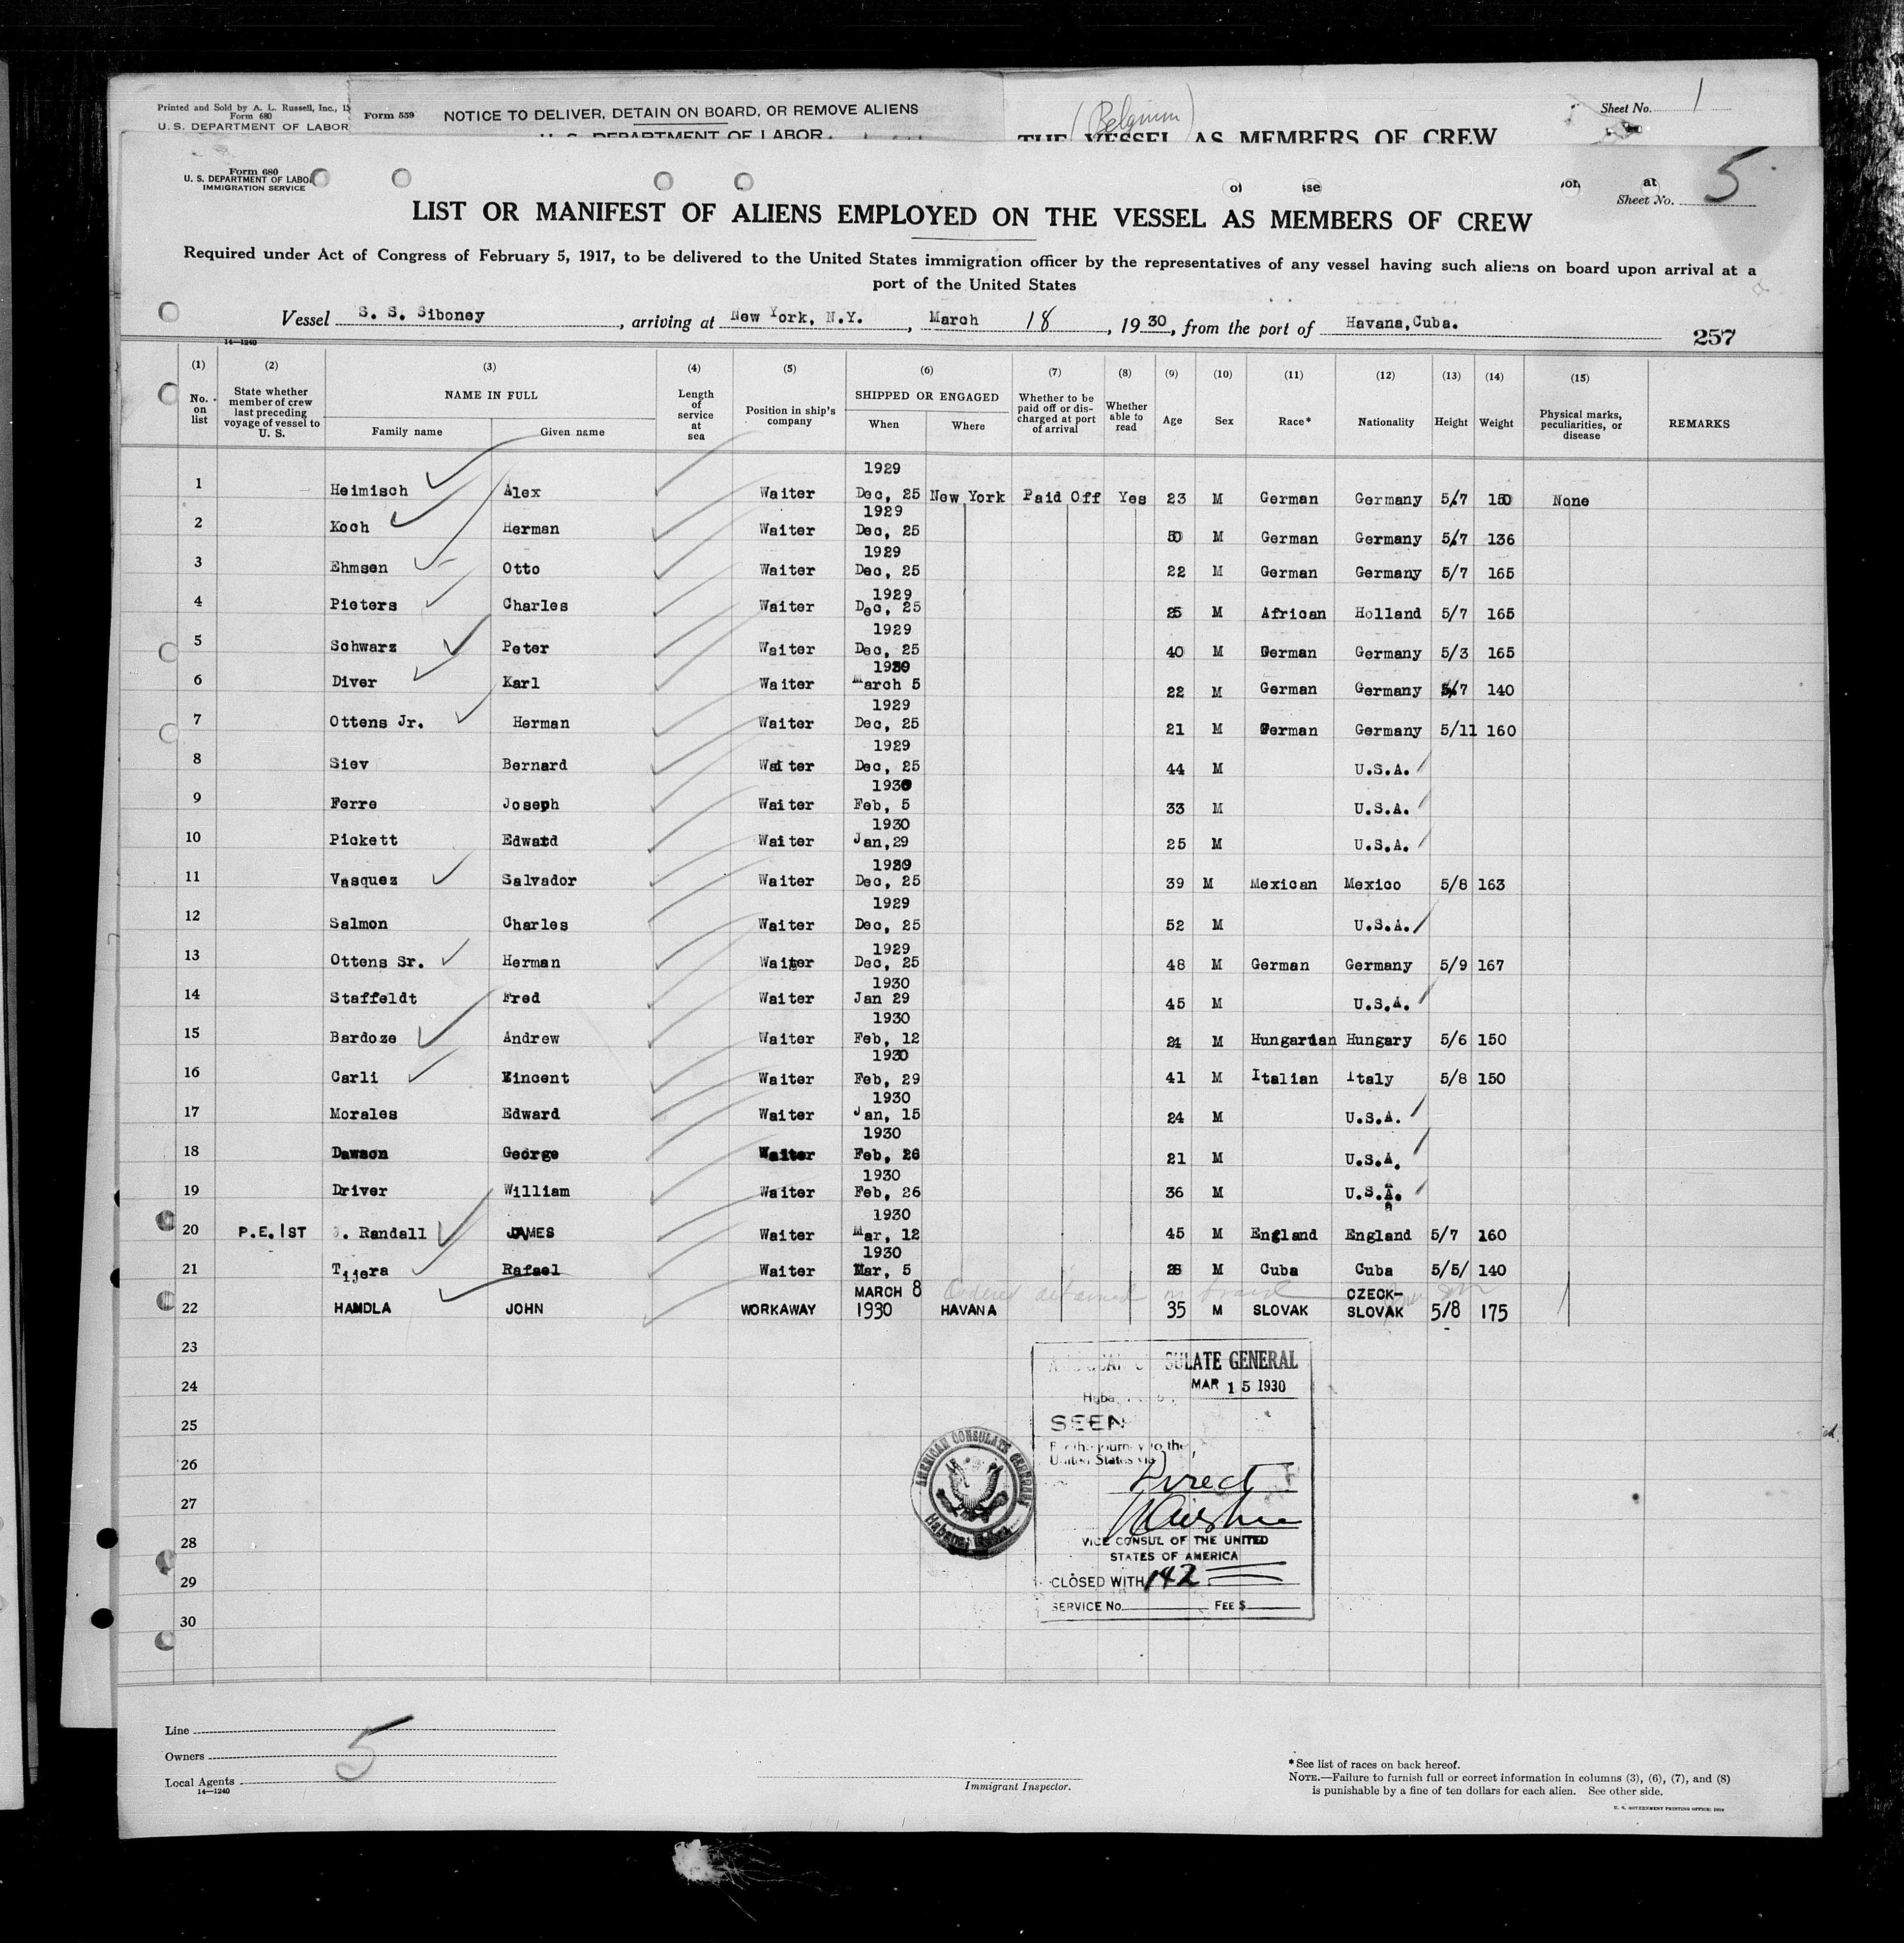 Printed and Sold by A. L. Russell, Inc.,
Form 680
U. S. DEPARTMENT OF LABOR
Form 559
NOTICE TO DELIVER, DETAIN ON BOARD, OR REMOVE ALIENS
U. S. DEPARTMENT OF LABOR
(Belgium)
THE VESSEL AS MEMBERS OF CREW
Sheet No. 1
Form 680
U. S. DEPARTMENT OF LABOR
IMMIGRATION SERVICE
Sheet No. 5
LIST OR MANIFEST OF ALIENS EMPLOYED ON THE VESSEL AS MEMBERS OF CREW
Required under Act of Congress of February 5, 1917, to be delivered to the United States immigration officer by the representatives of any vessel having such aliens on board upon arrival at a
port of the United States
Vessel S. S. Siboney, arriving at New York, N.Y., March 18, 1930, from the port of Havana, Cuba.
257
14—1240
(1) (2) (3) (4) (5) (6) (7) (8) (9) (10) (11) (12) (13) (14) (15)
No. on list State whether member of crew last preceding voyage of vessel to U. S. NAME IN FULL Family name Given name Length of service at sea Position in ship's company SHIPPED OR ENGAGED When Where Whether to be paid off or discharged at port of arrival Whether able to read Age Sex Race* Nationality Height Weight Physical marks, peculiarities, or disease REMARKS
1 Heimisch Alex Waiter 1929 Dec, 25 New York Paid Off Yes 23 M German Germany 5/7 150 None
2 Koch Herman Waiter 1929 Dec, 25 50 M German Germany 5/7 136
3 Ehmsen Otto Waiter 1929 Dec, 25 22 M German Germany 5/7 165
4 Pieters Charles Waiter 1929 Dec, 25 25 M African Holland 5/7 165
5 Schwarz Peter Waiter 1929 Dec, 25 40 M German Germany 5/3 165
6 Diver Karl Waiter 1930 March 5 22 M German Germany 5/7 140
7 Ottens Jr. Herman Waiter 1929 Dec, 25 21 M German Germany 5/11 160
8 Siev Bernard Waiter 1929 Dec, 25 44 M U.S.A.
9 Ferre Joseph Waiter 1930 Feb, 5 33 M U.S.A.
10 Pickett Edward Waiter 1930 Jan,29 25 M U.S.A.
11 Vasquez Salvador Waiter 1929 Dec, 25 39 M Mexican Mexico 5/8 163
12 Salmon Charles Waiter 1929 Dec, 25 52 M U.S.A.
13 Ottens Sr. Herman Waiter 1929 Dec, 25 48 M German Germany 5/9 167
14 Staffeldt Fred Waiter 1930 Jan 29 45 M U.S.A.
15 Bardoze Andrew Waiter 1930 Feb, 12 24 M Hungarian Hungary 5/6 150
16 Carli Vincent Waiter 1930 Feb, 29 41 M Italian Italy 5/8 150
17 Morales Edward Waiter 1930 Jan, 15 24 M U.S.A.
18 Dawson George Waiter 1930 Feb, 26 21 M U.S.A.
19 Driver William Waiter 1930 Feb, 26 36 M U.S.A.
20 P.E. 1ST Randall JAMES Waiter 1930 Mar, 12 45 M England England 5/7 160
21 Tijera Rafael Waiter 1930 Mar, 5 M Cuba Cuba 5/5/ 140
22 HAMDLA JOHN WORKAWAY MARCH 8 1930 HAVANA 35 M SLOVAK CZECK-SLOVAK 5/8 175
Ordered detained on board
23
24
25
26
27
28
29
30
SULATE GENERAL
MAR 15 1930
SEEN
For the journey to the
United States via
Direct
VICE CONSUL OF THE UNITED
STATES OF AMERICA
CLOSED WITH 142
SERVICE No. FEE $
AMERICAN CONSULATE GENERAL
Habana, Cuba
Line
Owners
Local Agents
14—1240
5
Immigrant Inspector.
*See list of races on back hereof.
NOTE.—Failure to furnish full or correct information in columns (3), (6), (7), and (8)
is punishable by a fine of ten dollars for each alien. See other side.